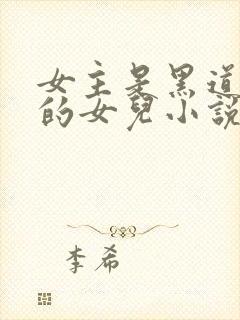 女主是黑道
的女兒小說
李希